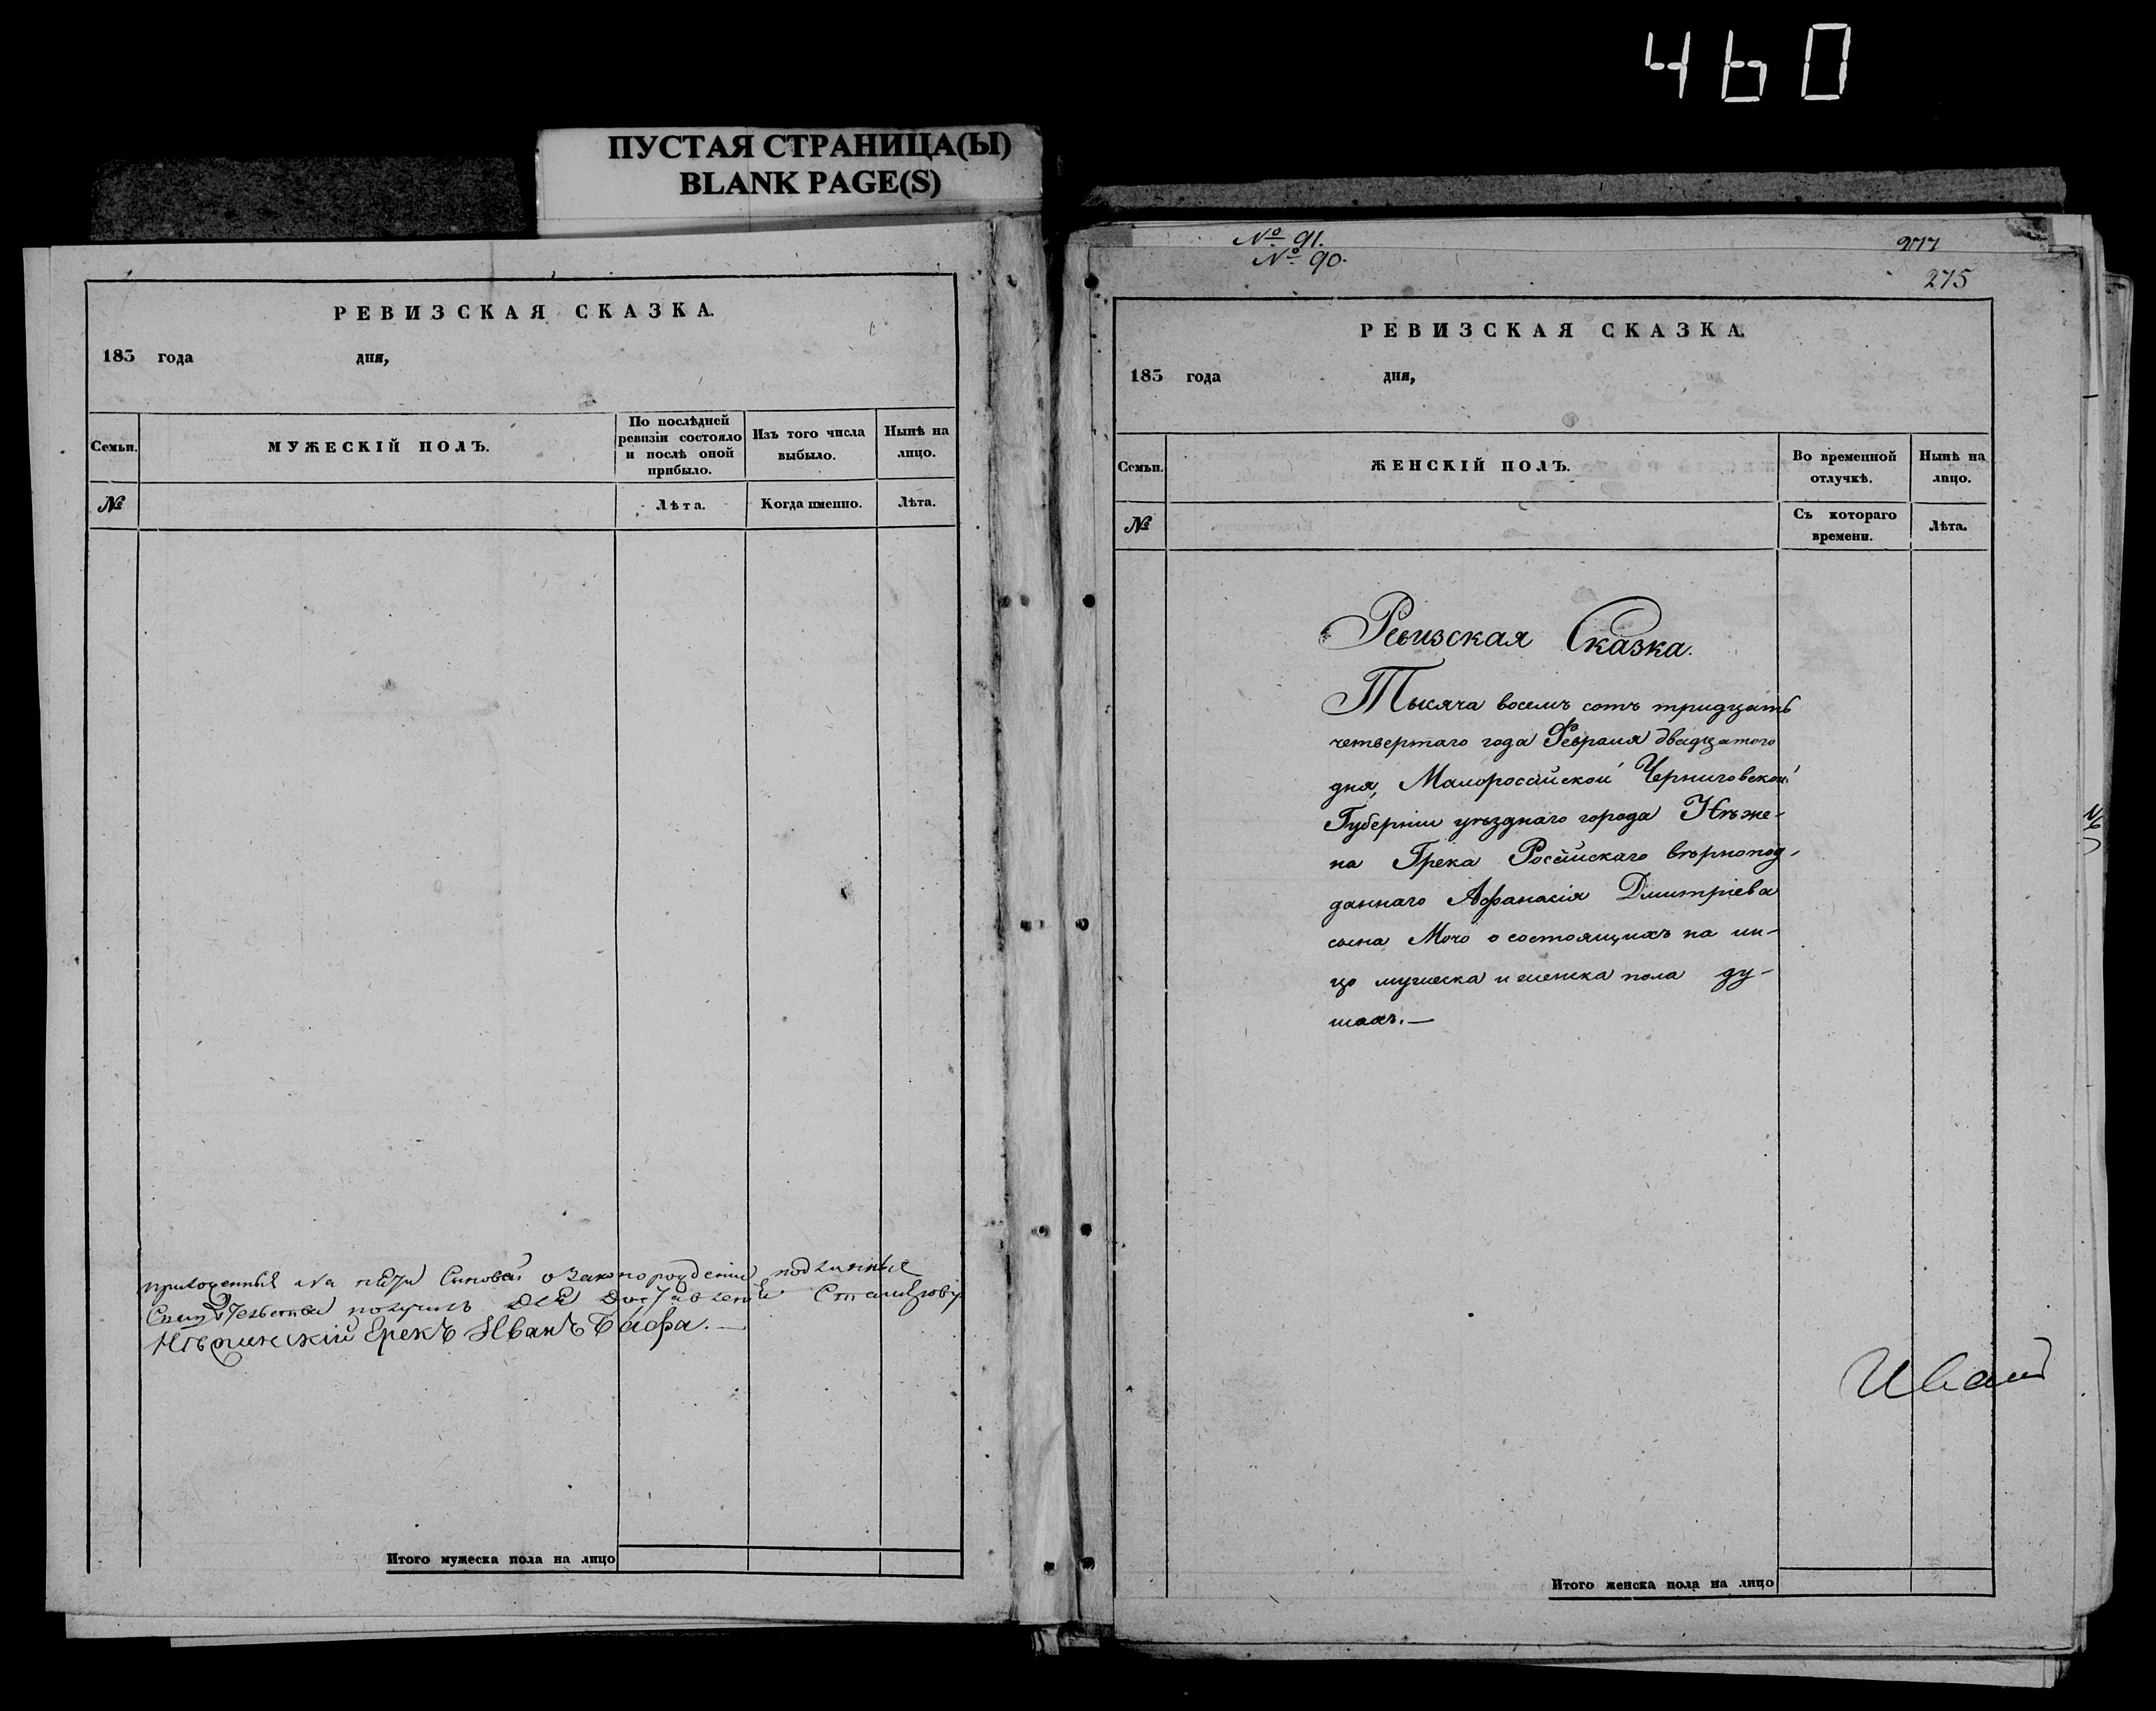 460
ПУСТАЯ СТРАНИЦА(Ы)
BLANK PAGE(S)
РЕВИЗСКАЯ СКАЗКА.
183 года дня,
Семьи.
МУЖЕСКІЙ ПОЛЪ.
По послѣдней ревизіи состояло и послѣ оной прибыло.
Изъ того числа выбыло.
Нынѣ на лицо.
№
Лѣта.
Когда именно.
Лѣта.
приложенныя на пяти Синовей о Законорождении подлинныя
Свидѣтельства получилъ для доставления
Нѣжинскій Грекъ Иванъ Бафа.—
Итого мужеска пола на лицо
№ 91.
№ 90.
277
275
РЕВИЗСКАЯ СКАЗКА.
183 года дня,
Семьи.
ЖЕНСКІЙ ПОЛЪ.
Во временной отлучкѣ.
Нынѣ на лицо.
№
Съ котораго времени.
Лѣта.
Ревизская Сказка.
Тысяча восемъ сотъ тридцать
четвертаго года Февраля двадцатого
дня, Малоросiйской Черниговской
Губерніи уѣзднаго города Нѣже-
на Грека Росiйскаго вѣрнопод-
даннаго Афанасія Дмитріева
сына Мочо о состоящихъ на ли-
цо мужеска и женска пола ду-
шахъ.—
Иванъ
Итого женска пола на лицо